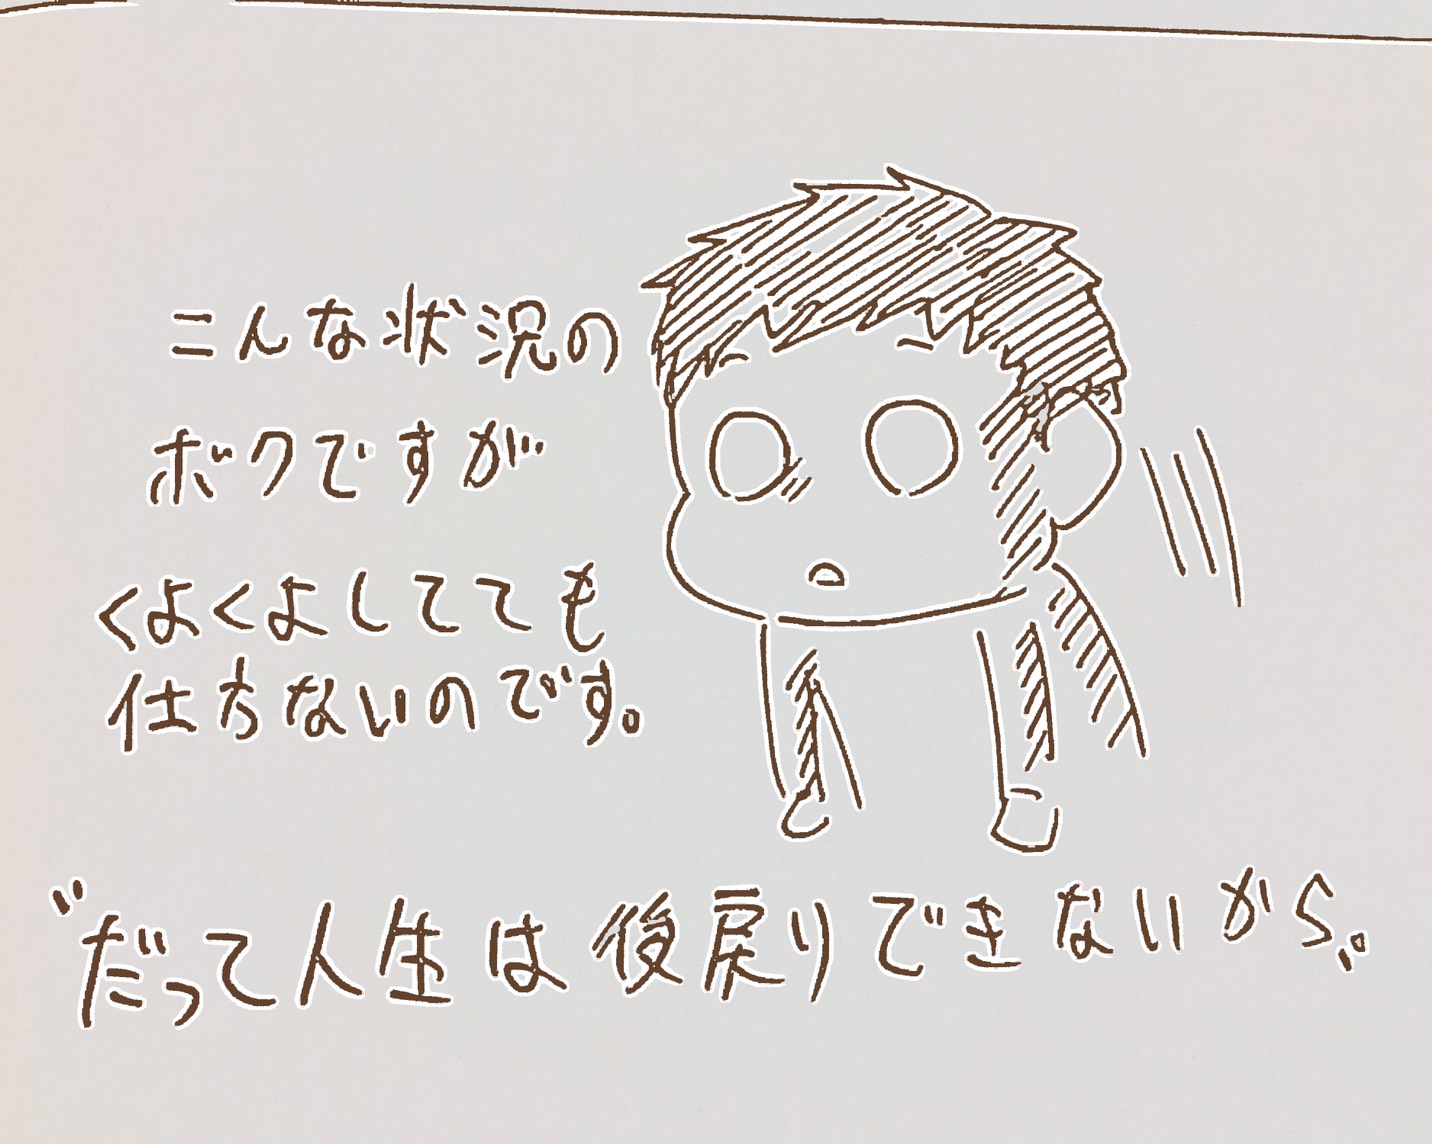 こんな状況の
ボクですが
くよくよしてても
仕方ないのです。
"だって人生は後戻りできないから〟